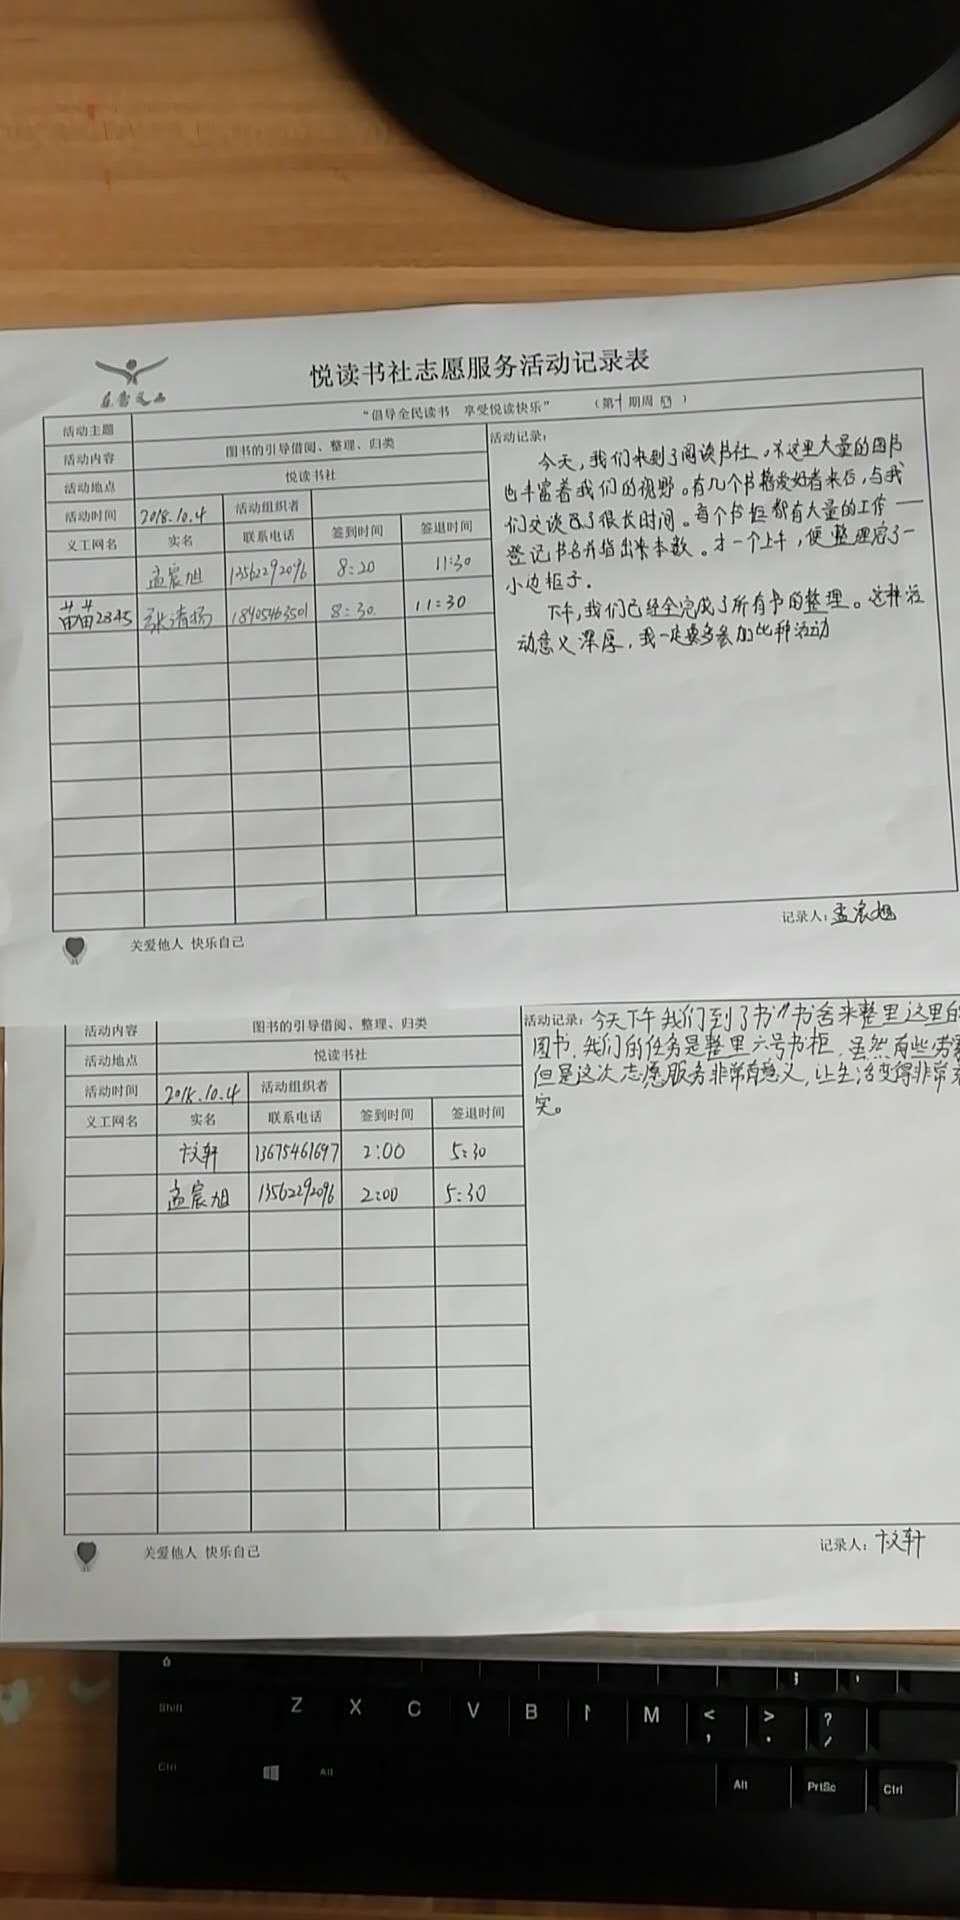 悦读书社志愿服务活动记录表
活动主题 “倡导全民读书 享受悦读快乐” （第十期周四）
活动内容 图书的引导借阅、整理、归类
活动地点 悦读书社
活动时间 2018.10.4 活动组织者
义工网名 实名 联系电话 签到时间 签退时间
孟宸旭 13562292096 8:20 11:30
苗苗2345 张清扬 18405463501 8:30 11:30
活动记录：
今天，我们来到了阅读书社。在这里大量的图书
也丰富着我们的视野。有几个书籍爱好者来后，与我
们交谈了很长时间。每个书柜都有大量的工作——
登记书名并指出来本数。才一个上午，便整理完了一
小边柜子.
下午，我们已经全完成了所有书的整理。这种活
动意义深厚，我一定要多参加此种活动
记录人：孟宸旭
关爱他人 快乐自己
活动内容 图书的引导借阅、整理、归类
活动地点 悦读书社
活动时间 2018.10.4 活动组织者
义工网名 实名 联系电话 签到时间 签退时间
卞文轩 13675461697 2:00 5:30
孟宸旭 13562292096 2:00 5:30
活动记录：今天下午我们到了书书舍来整里这里的
图书.我们的任务是整里六号书柜.虽然有些劳
但是这次志愿服务非常有意义,让生活变得非常充
实。
记录人：卞文轩
关爱他人 快乐自己
Shift Z X C V B M < , > . ? /
Ctrl Alt Alt PrtSc Ctrl